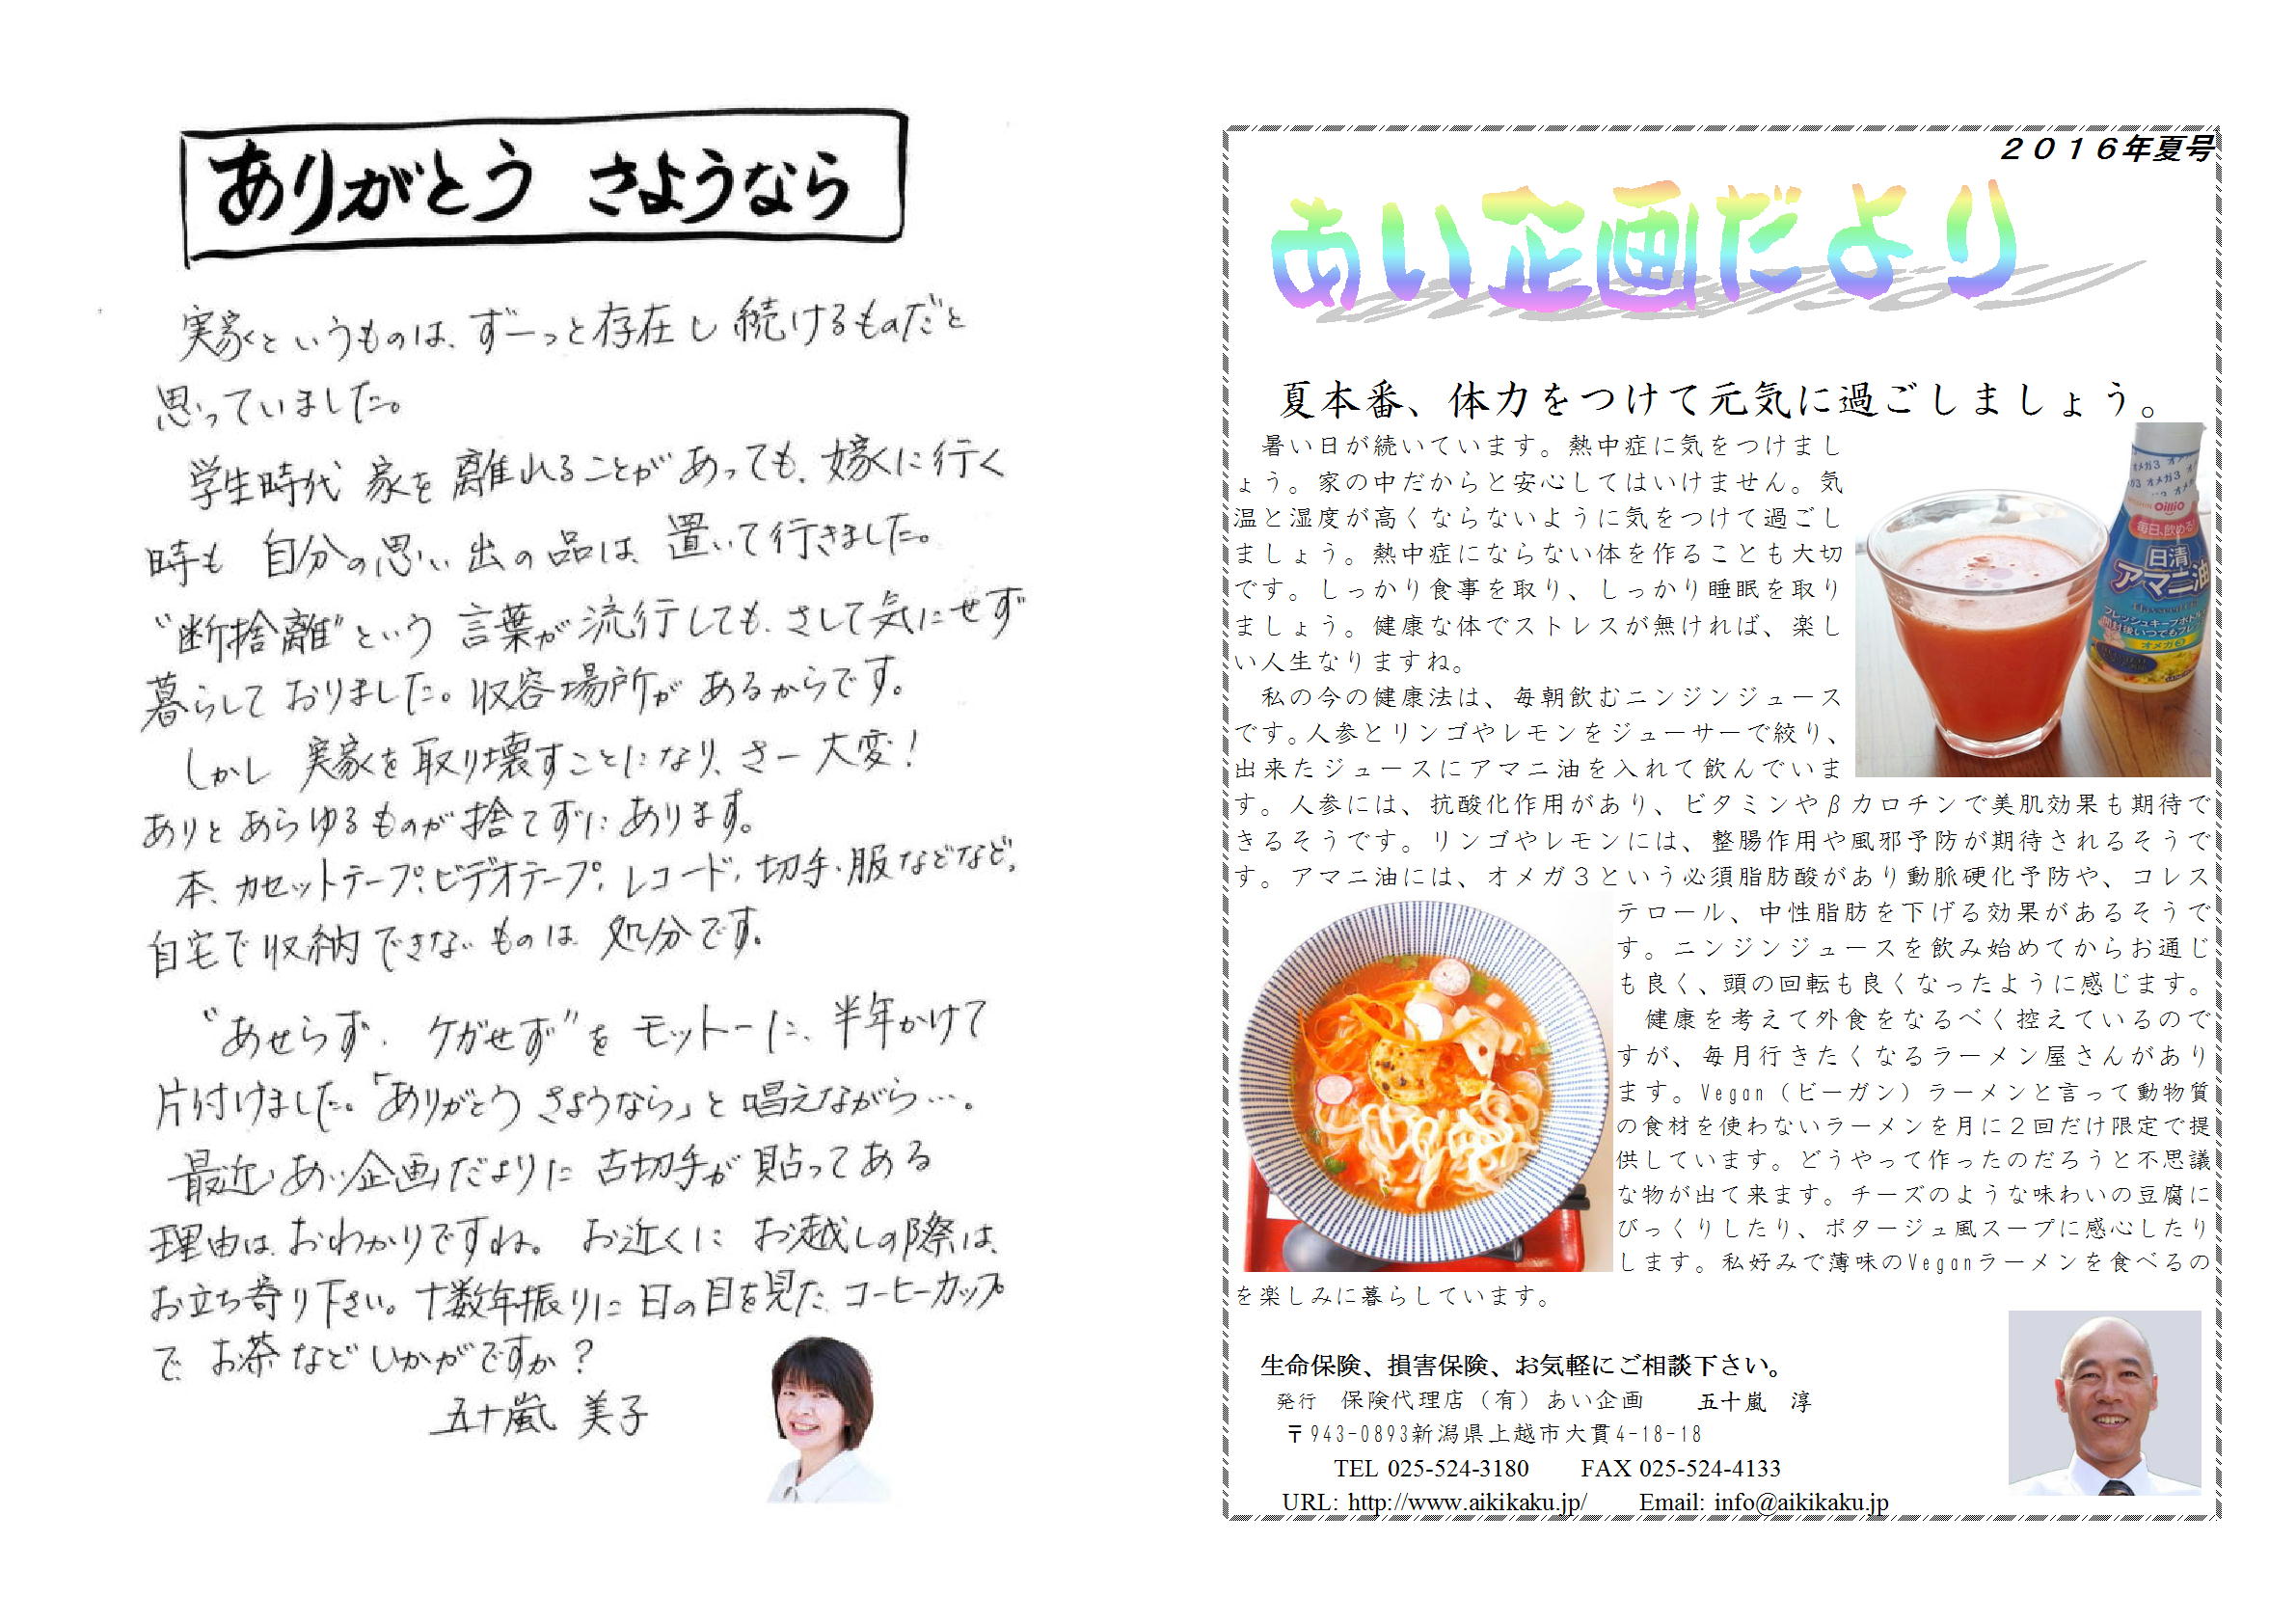 ありがとう さようなら
実家というものは、ずーっと存在し続けるものだと
思っていました。
学生時代 家を離れることがあっても、嫁に行く
時も 自分の思い出の品は、置いて行きました。
“断捨離”という言葉が流行しても、さして気にせず
暮らしておりました。収容場所があるからです。
しかし 実家を取り壊すことになり、さー大変！
ありとあらゆるものが捨てずにあります。
本、カセットテープ、ビデオテープ、レコード、切手、服などなど、
自宅で収納できないものは 処分です。
“あせらず、ケガせず”をモットーに、半年かけて
片付けました。「ありがとう さようなら」と唱えながら…。
最近、あい企画だよりに 古切手が貼ってある
理由は、おわかりですね。 お近くに お越しの際は、
お立ち寄り下さい。十数年振りに日の目を見た コーヒーカップ
で お茶などいかがですか？
五十嵐 美子
２０１６年夏号
あい企画だより
夏本番、体力をつけて元気に過ごしましょう。
暑い日が続いています。熱中症に気をつけまし
ょう。家の中だからと安心してはいけません。気
温と湿度が高くならないように気をつけて過ごし
ましょう。熱中症にならない体を作ることも大切
です。しっかり食事を取り、しっかり睡眠を取り
ましょう。健康な体でストレスが無ければ、楽し
い人生なりますね。
私の今の健康法は、毎朝飲むニンジンジュース
です。人参とリンゴやレモンをジューサーで絞り、
出来たジュースにアマニ油を入れて飲んでいま
す。人参には、抗酸化作用があり、ビタミンやβカロチンで美肌効果も期待で
きるそうです。リンゴやレモンには、整腸作用や風邪予防が期待されるそうで
す。アマニ油には、オメガ３という必須脂肪酸があり動脈硬化予防や、コレス
テロール、中性脂肪を下げる効果があるそうで
す。ニンジンジュースを飲み始めてからお通じ
も良く、頭の回転も良くなったように感じます。
健康を考えて外食をなるべく控えているので
すが、毎月行きたくなるラーメン屋さんがあり
ます。Vegan（ビーガン）ラーメンと言って動物質
の食材を使わないラーメンを月に２回だけ限定で提
供しています。どうやって作ったのだろうと不思議
な物が出て来ます。チーズのような味わいの豆腐に
びっくりしたり、ポタージュ風スープに感心したり
します。私好みで薄味のVeganラーメンを食べるの
を楽しみに暮らしています。
オメガ3
Oillio
毎日、飲める!
日清
アマニ油
フレッシュキープボトル
開封後いつでもフレ
オメガ3
生命保険、損害保険、お気軽にご相談下さい。
発行 保険代理店（有）あい企画 五十嵐 淳
〒943-0893新潟県上越市大貫4-18-18
TEL 025-524-3180 FAX 025-524-4133
URL: http://www.aikikaku.jp/ Email: info@aikikaku.jp